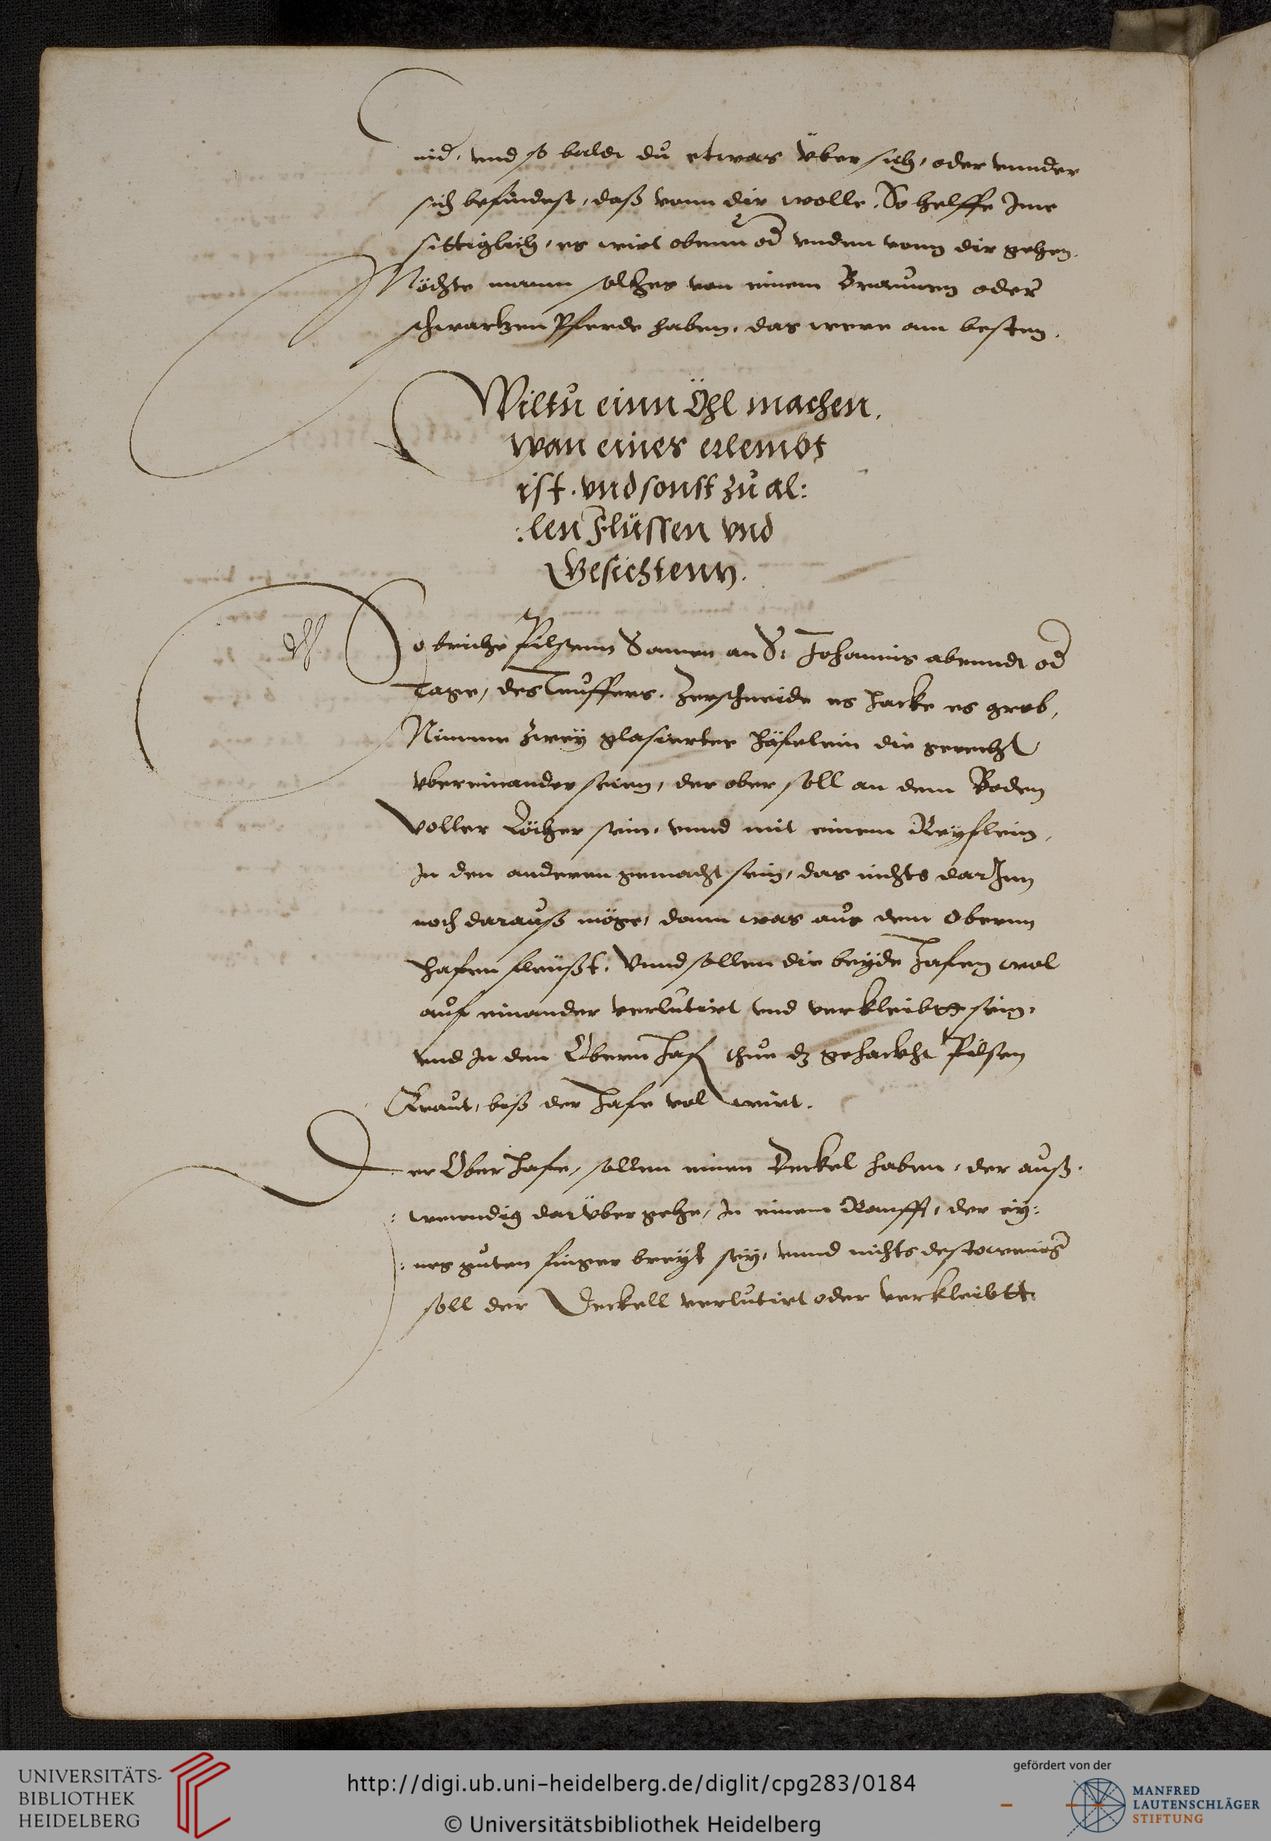 nid, vnd so baldt du etwas Über sich, oder vnnder
sich befindest, daß vonn dir wolle, So helffe Ime
sittiglich, es wirt obenn od vnden vonn dir gehen,
Möchte mann solches von einem Braunen oder
schwartzen Pferde haben, das were am besten.
Wiltu einn Öhl machen,
wan eines erlembt
ist. vnd sonst zu al:
:len Flüssen vnd
Gesichtenn.
So briche Pilsenn Samen an S: Johannis abenndt od
Tage, des Teuffers. Zerschneide es hacke es grob,
Nimme zwey glasurter häfelein die gerecht
vbereinander seien, der ober soll an dem Boden
voller Löcher sein, vnnd mit einem Reyflein,
In den anderen gemacht sein, das nichts dar Inn
noch darauß möge, dann was aus dem Obernn
hafen fleüßt, Vnnd sollen die beyde hafen wol
auf einander verlutirt vnd verkleibtt sein,
vnd In den Obern haf thue dz gehackht Pilsen
Kraut, biß der hafe vol wirt.
Der Ober hafe, sollen einen Deckel haben, der auß,
:wenndig darüber gehe, In einem Ranfft, der ey:
:nes guten finger breyt sey, vnnd nichts destoweniger
soll der Deckell verlutirt oder verkleibtt
UNIVERSITÄTS-
BIBLIOTHEK
HEIDELBERG
http://digi.ub.uni-heidelberg.de/diglit/cpg283/0184
© Universitätsbibliothek Heidelberg
gefördert von der
MANFRED
LAUTENSCHLÄGER
STIFTUNG